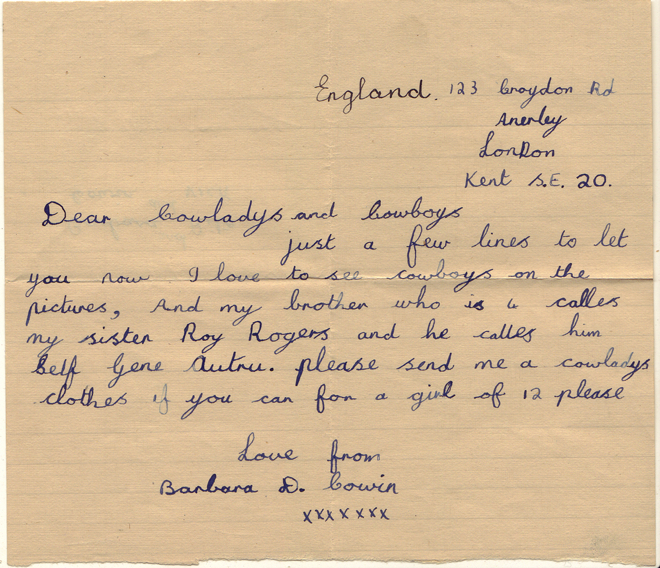 England. 123 Croydon Rd
Anerley
London
Kent S.E. 20.
Dear Cowladys and Cowboys
just a few lines to let
you now I love to see cowboys on the
pictures, And my brother who is 4 calles
my sister Roy Rogers and he calles him
self Gene Autru. please send me a cowladys
clothes if you can for a girl of 12 please
Love from
Barbara D. Cowin
xxxxxxx